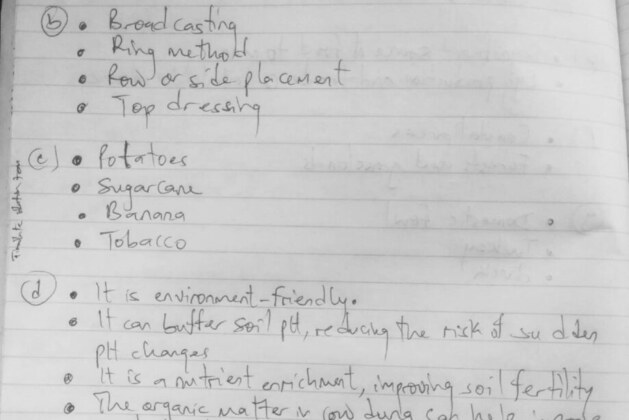 (b) • Broadcasting
• Ring method
• Row or side placement
• Top dressing
(c) • Potatoes
• Sugarcane
• Banana
• Tobacco
(d) • It is environment-friendly.
• It can buffer soil pH, reducing the risk of sudden
pH changes
• It is a nutrient enrichment, improving soil fertility
• The organic matter in cow dung can help